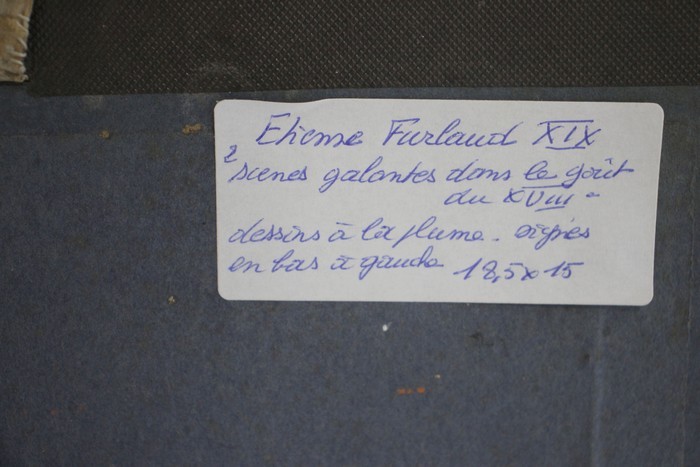 Etienne Furlaud XIX
2 scènes galantes dans le goût
du XVIII e
dessins à la plume. signés
en bas à gauche 18,5x15